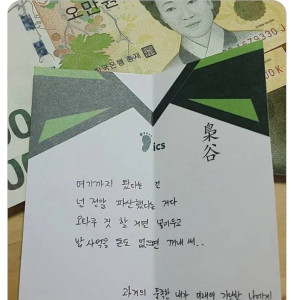 오만원
한국은행 총재
ics
梟
谷
여기까지 왔다는 건
넌 정말 파산했다는 거다
오타쿠 짓 할 거면 넣어두고
밥 사먹을 돈도 없으면 꺼내 써..
과거의 풍족한 내가 미래의 가난한 나에게